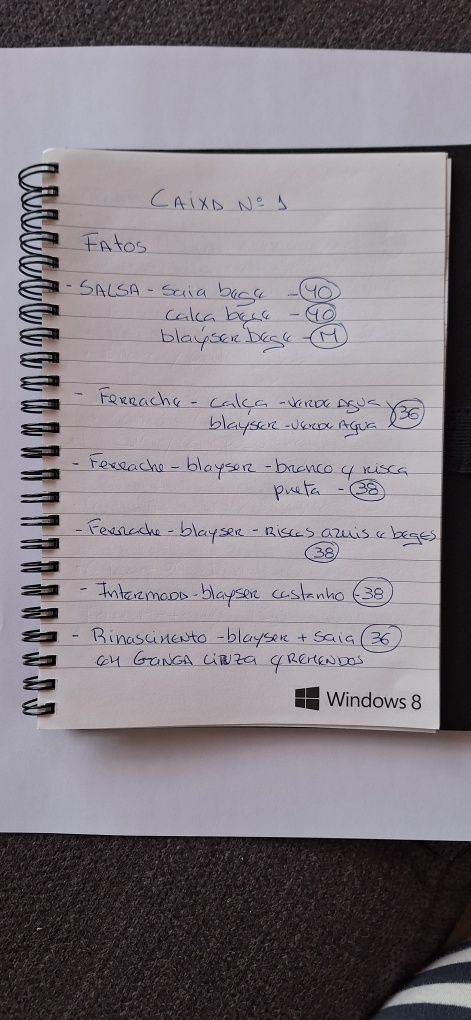 CAIXA Nº 1
FATOS
- SALSA - saia bege - 40
calça bege - 40
blayser bege - M
- Ferrache - calça - VERDE AGUA
blayser - VERDE AGUA 36
- Ferrache - blayser - branco c/ risca
preta - 38
- Ferrache - blayser - Riscas azuis e beges
38
- Intermoda - blayser castanho - 38
- Rinascimento - blayser + saia 36
em GANGA CINZA c/ REMENDOS
Windows 8